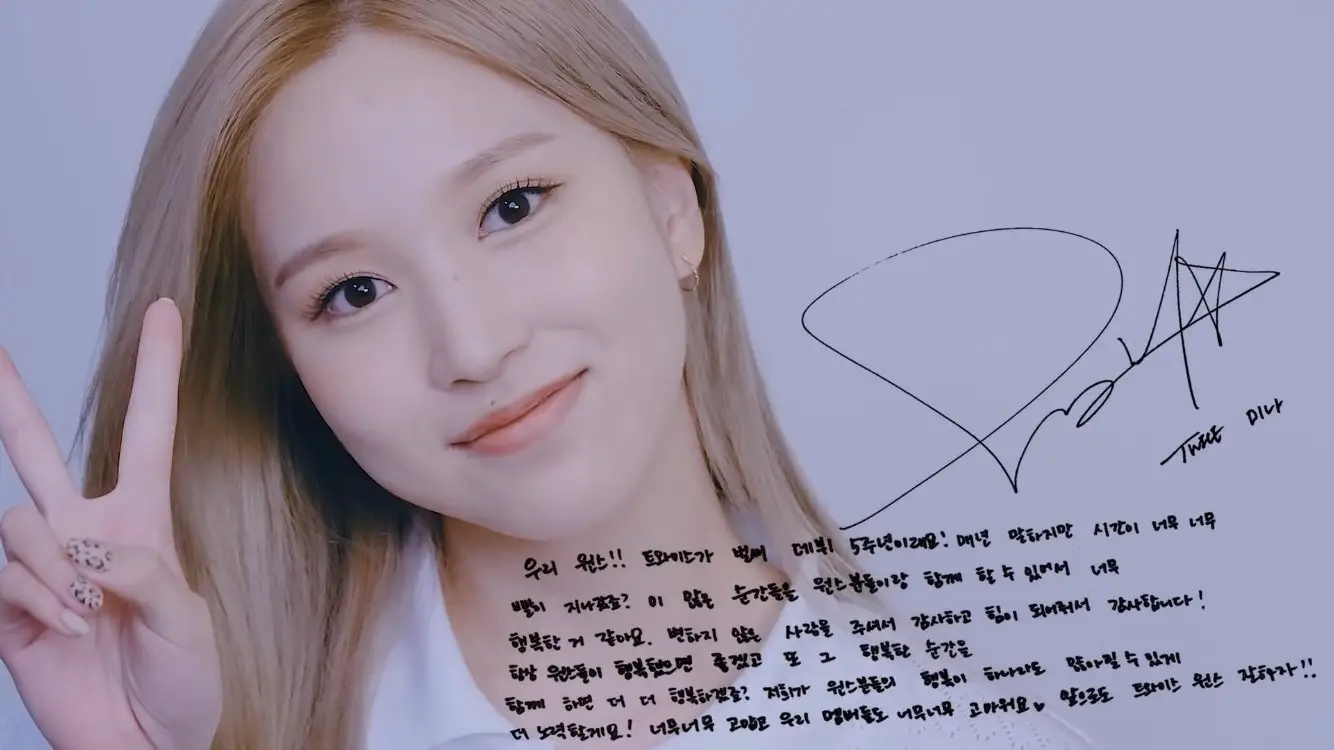 TWICE 미나
우리 원스!! 트와이스가 벌써 데뷔 5주년이래요! 매년 말하지만 시간이 너무 너무
빨리 지나갔죠? 이 많은 순간들을 원스분들이랑 함께 할 수 있어서 너무
행복한 거 같아요. 변하지 않은 사랑을 주셔서 감사하고 힘이 되어줘서 감사합니다!
항상 원스들이 행복했으면 좋겠고 또 그 행복한 순간을
함께 하면 더 더 행복하겠죠? 저희가 원스분들의 행복이 하나라도 많아질 수 있게
더 노력할게요! 너무너무 고맙고 우리 멤버들도 너무너무 고마워요♥ 앞으로도 트와이스 원스 잘하자!!